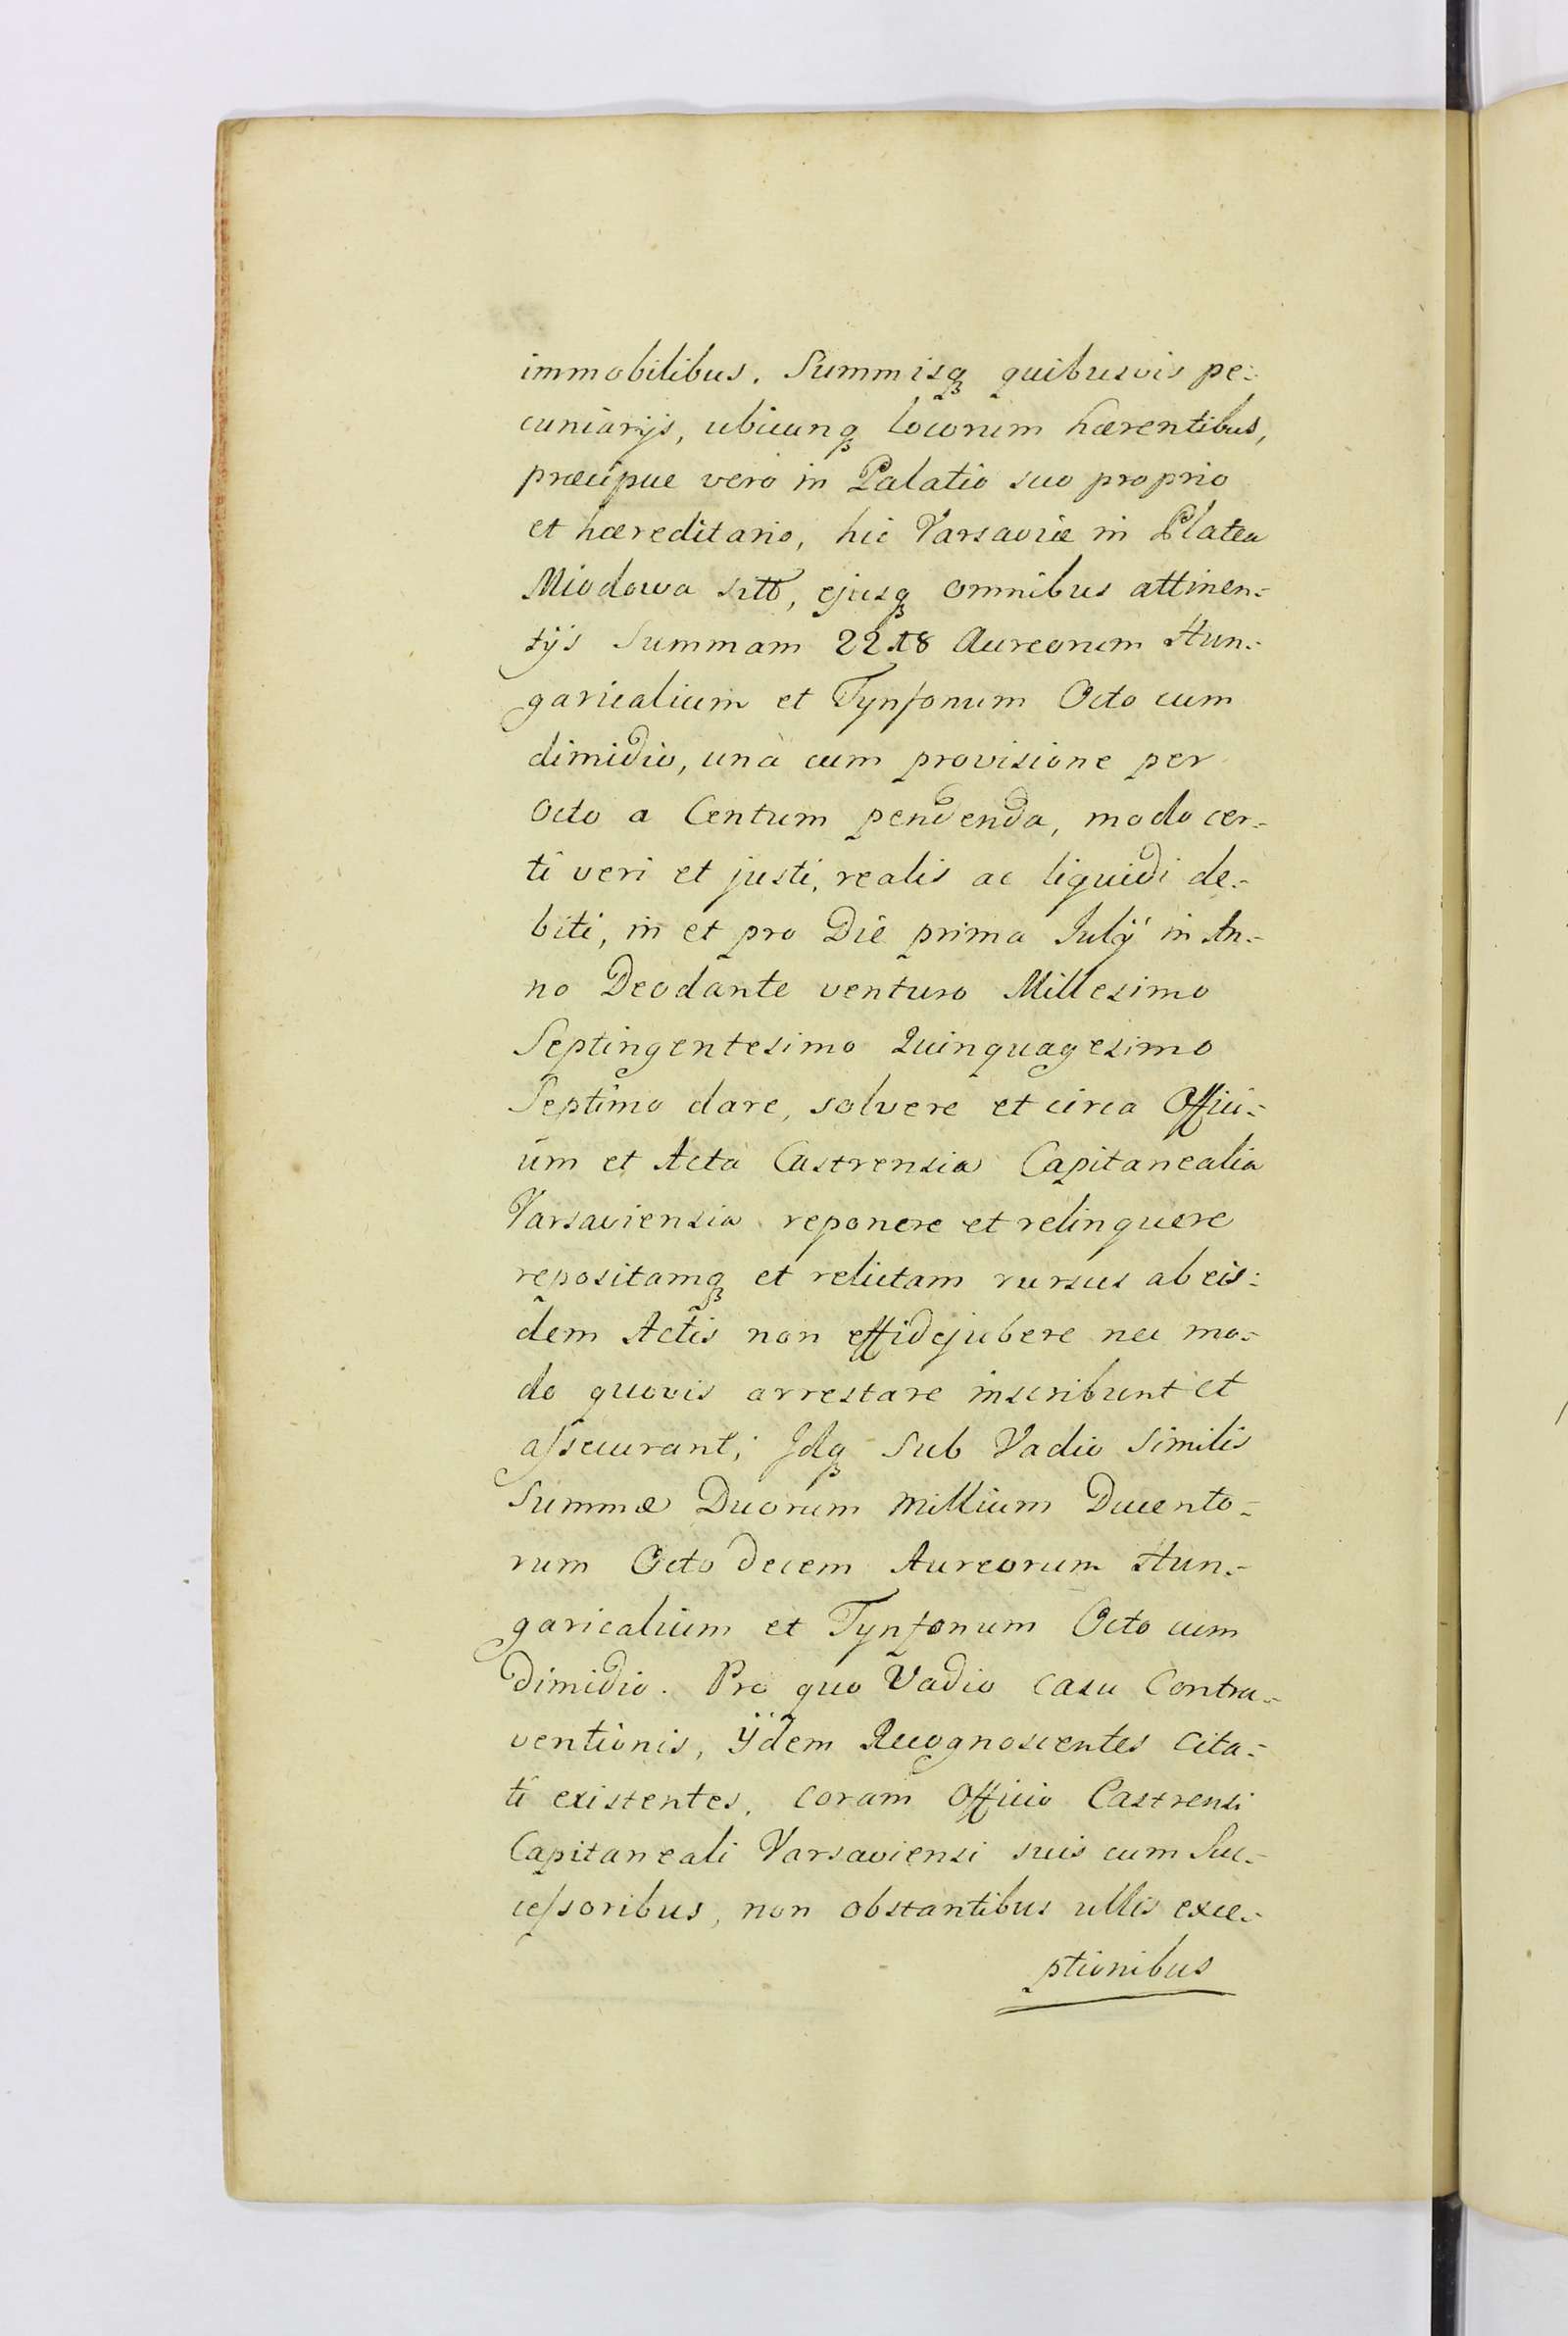 immobilibus. Summisq́ꝫ quibusvis pe-
cuniarijs, ubicunqꝫ locorum hærentibus,
præcipue vero in Palatio suo proprio
et hæreditario, hic Varsaviæ in Platea
Miodowa sito, ejusqꝫ omnibus attinen-
tijs Summam 2218 Aureorum Hun-
garicalium et Tynfonum Octo cum
dimidio, unà cum provisione per
Octo a Centum pendenda, modo cer-
ti veri et justi, realis ac liquidi de-
biti, in et pro Die prima Julÿ in An-
no Deodante venturo Millesimo
Septingentesimo Quinquagesimo
Septimo dare, solvere et circa Offici-
um et Acta Castrensia Capitanealia
Varsaviensia reponere et relinquere
repositamqꝫ et relictam rursus ab eis-
dem Actis non effidejubere nec mo-
do quovis arrestare inscribunt et
aſsecurant; Idqꝫ Sub Vadio Similis
Summæ Duorum Millium Ducento-
rum Octo decem Aureorum Hun-
garicalium et Tynfonum Octo cum
Dimidio. Pro quo Vadio casu Contra-
ventionis, ÿdem Recognoscentes cita-
ti existentes, coram Officio Castrensi
Capitaneali Varsaviensi suis cum Suc-
ceſsoribus, non obstantibus ullis exce-
ptionibus